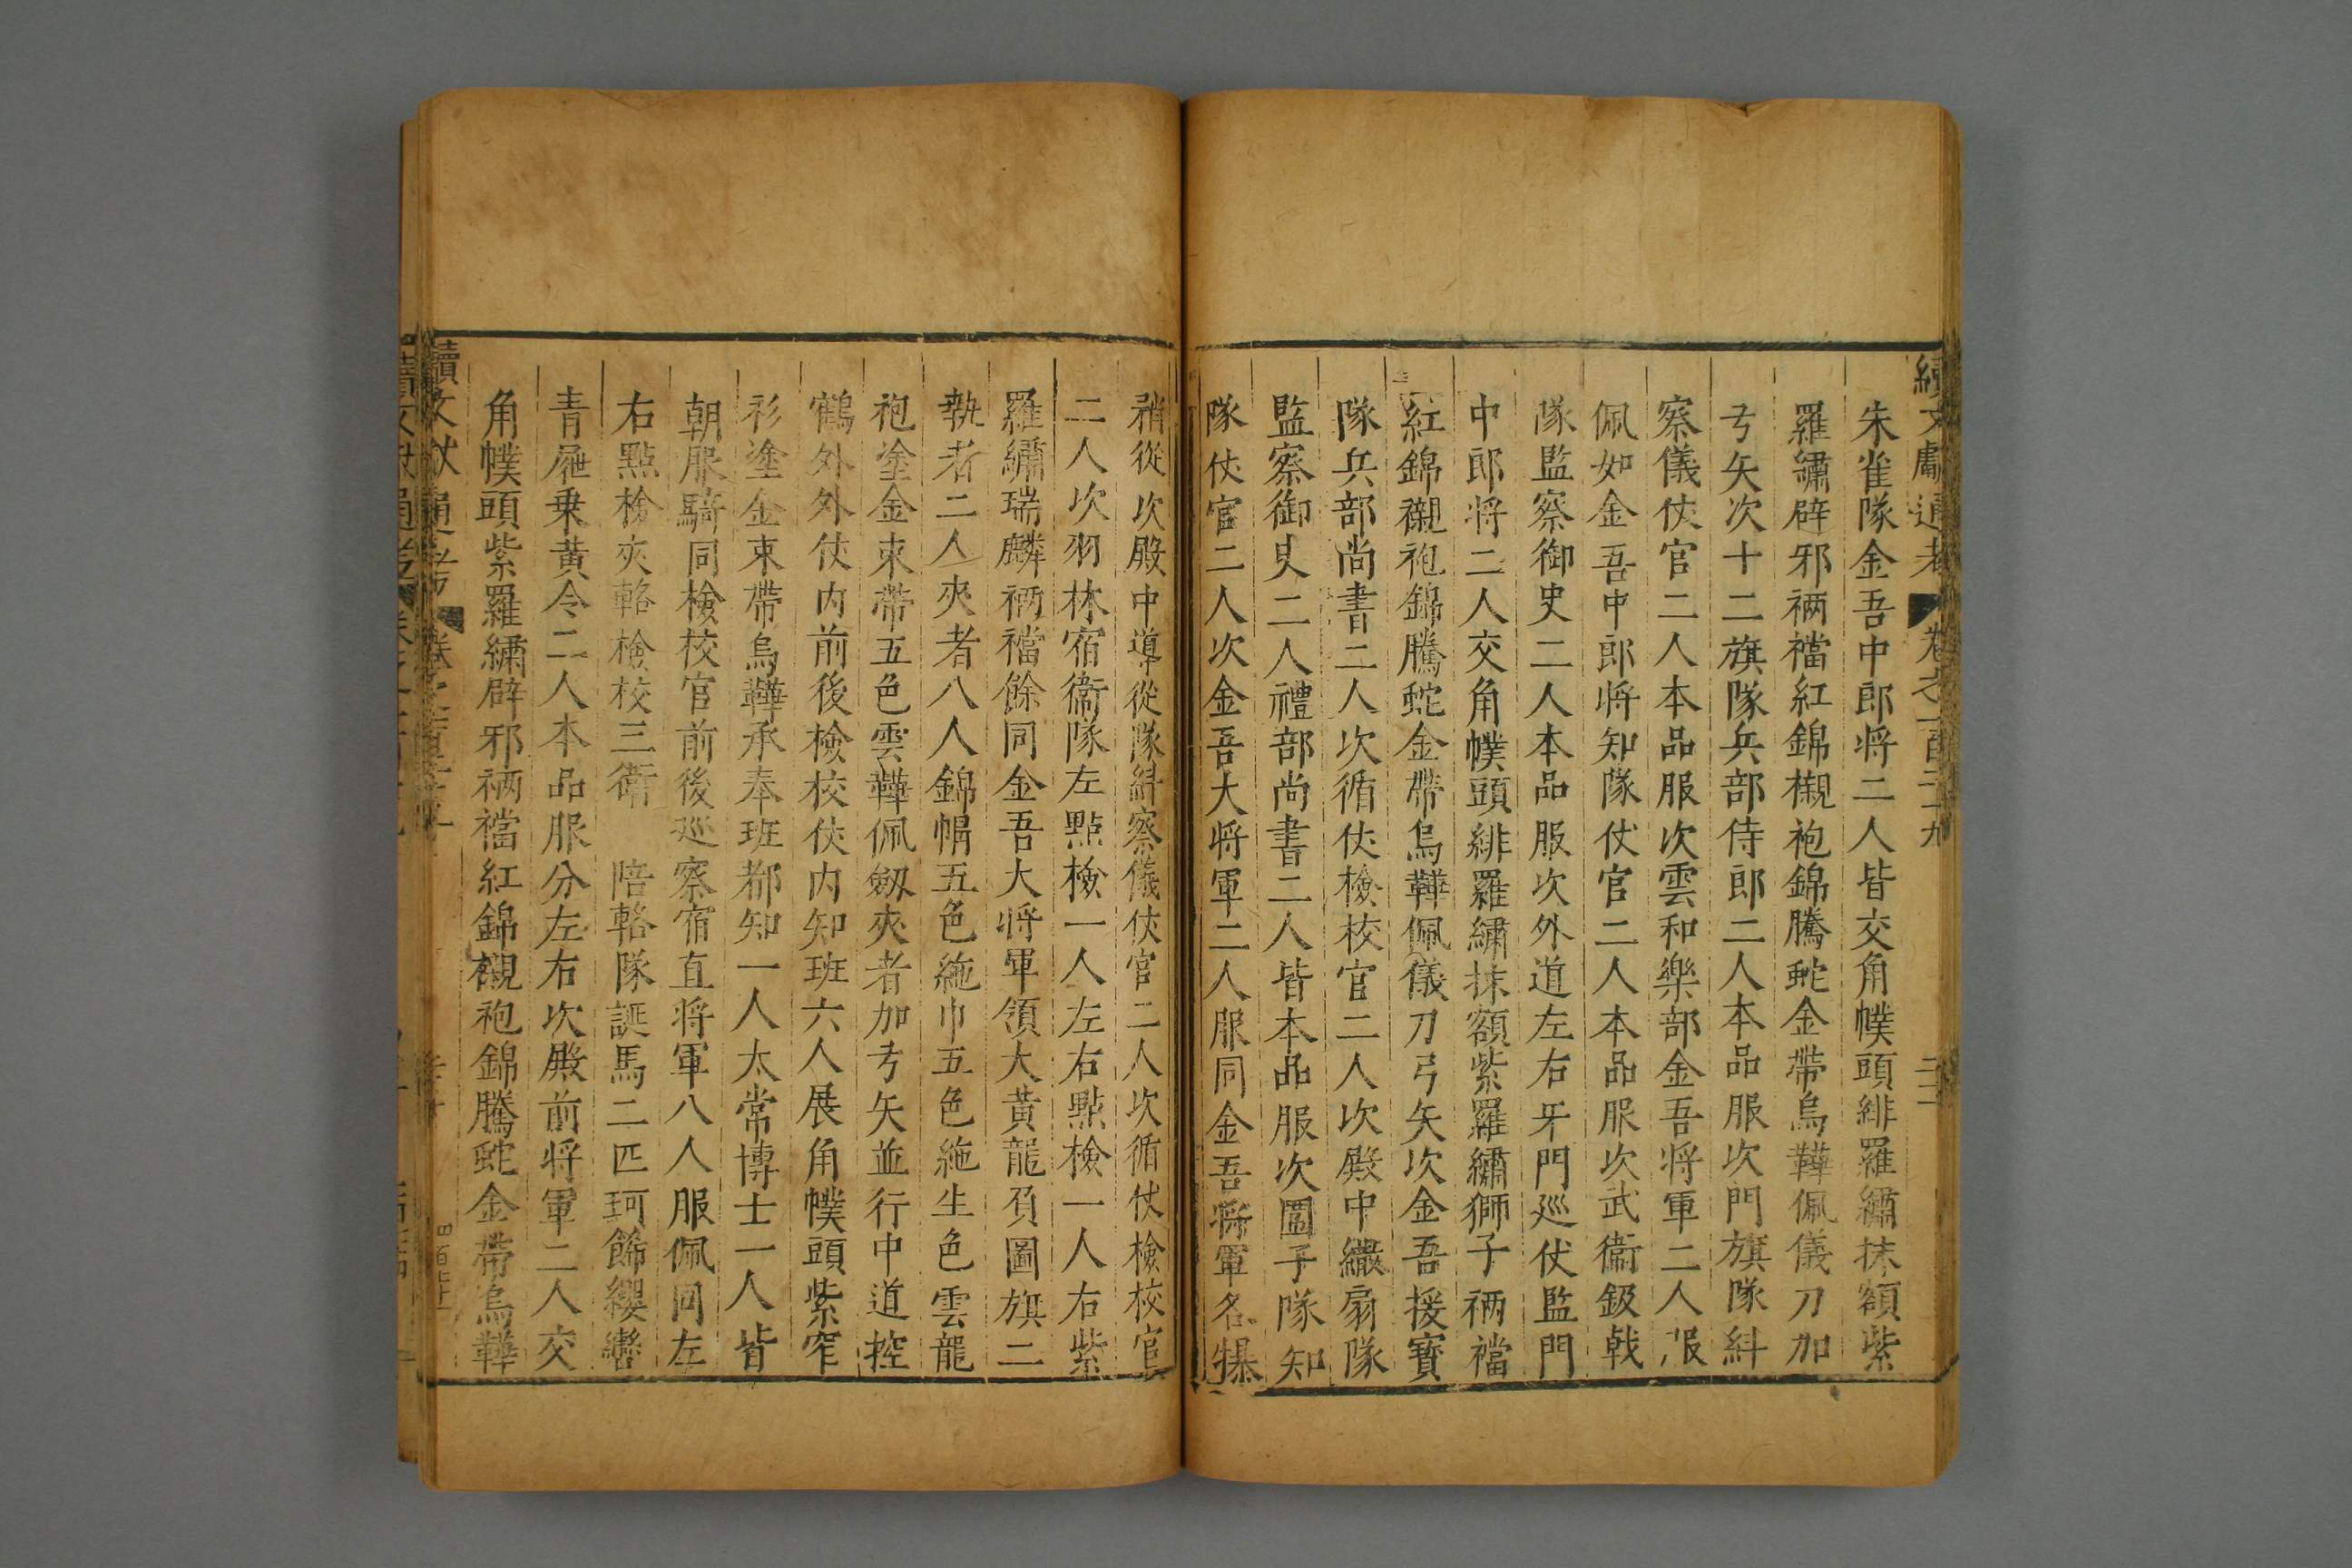 續文獻通考 卷之一百二十九
朱雀隊金吾中郎將二人皆交角幞頭緋羅繡抹額紫
羅繡辟邪裲襠紅錦襯袍錦騰蛇金帶烏鞾佩儀刀加
弓矢次十二旗隊兵部侍郎二人本品服次門旗隊糾
察儀仗官二人本品服次雲和樂部金吾將軍二人服
佩如金吾中郎將知隊仗官二人本品服次武衞鈒戟
隊監察御史二人本品服次外道左右牙門巡仗監門
中郎將二人交角幞頭緋羅繡抹額紫羅繡獅子裲襠
紅錦襯袍錦騰蛇金帶烏鞾佩儀刀弓矢次金吾援寶
隊兵部尚書二人次循仗檢校官二人次殿中繖扇隊
監察御史二人禮部尚書二人皆本品服次圍子隊知
隊仗官二人次金吾大將軍二人服同金吾將軍名犦
矟從次殿中導從隊糾察儀仗官二人次循仗檢校官
二人次羽林宿衞隊左點檢一人左右點檢一人右紫
羅繡瑞麟裲襠餘同金吾大將軍領大黃龍負圖旗二
執者二人夾者八人錦帽五色絁巾五色絁生色雲龍
袍塗金束帶五色雲鞾佩劔夾者加弓矢並行中道控
鶴外外仗內前後檢校仗內知班六人展角幞頭紫窄
衫塗金束帶烏鞾承奉班都知一人太常博士一人皆
朝服騎同檢校官前後巡察宿直將軍八人服佩同左
右點檢夾輅檢校三衞 陪輅隊誕馬二匹珂飾纓轡
青屜乗黃令二人本品服分左右次殿前將軍二人交
角幞頭紫羅繡辟邪裲襠紅錦襯袍錦騰蛇金帶烏鞾
續文獻通考